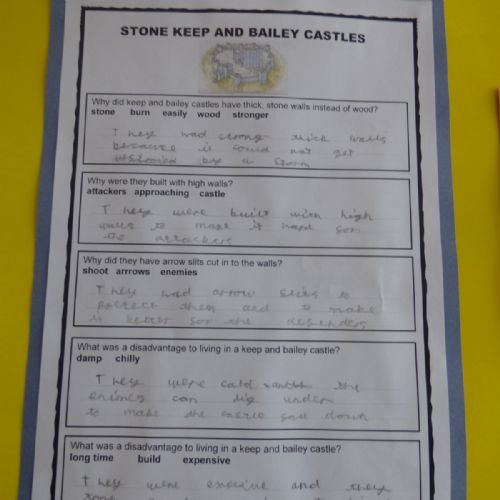 STONE KEEP AND BAILEY CASTLES
Why did keep and bailey castles have thick, stone walls instead of wood?
stone burn easily wood stronger
They had strong thick walls
because it could not get
by a storm
Why were they built with high walls?
attackers approaching castle
They were built with high
walls to make it hard for
the attackers
Why did they have arrow slits cut in to the walls?
shoot arrrows enemies
They had arrow slits to
protect them and to make
it better for the defenders
What was a disadvantage to living in a keep and bailey castle?
damp chilly
They were cold the
can dig under
to make the fall down
What was a disadvantage to living in a keep and bailey castle?
long time build expensive
They were and they